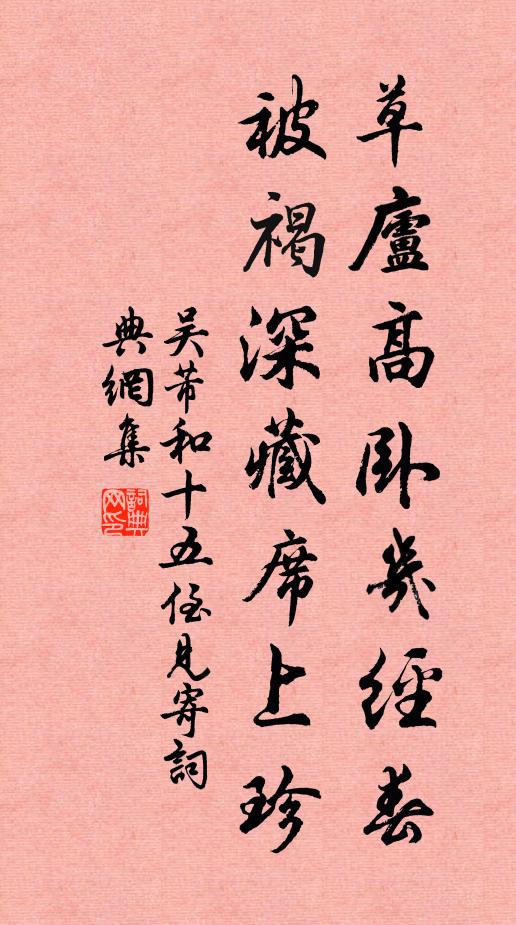 草廬高卧幾經春
被褐深藏席上珍
吴芾和十五侄見寄詞
典網集
詞典網印